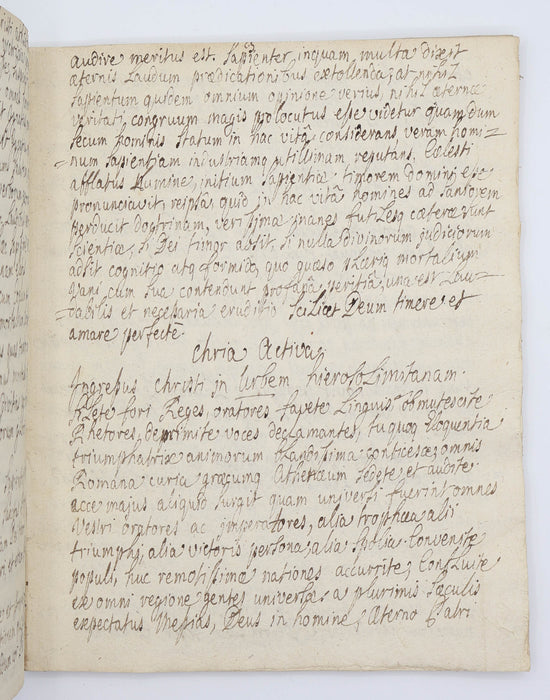 audire meritus est. Sapienter, inquam, multa dixit
æternis Laudum prædicationibus extollenda; at nihil
Sapientum quidem omnium opinione verius, nihil æternæ
veritati, congruum magis prolocutus esse videtur quam dum
secum hominis Statum in hac vitâ considerans veram homi=
=num Sapientiam industriamq utilissimam reputans, Cælesti
afflatus Numine, initium Sapientiæ timorem domini esse
pronunciavit; reipsâ, quid in hac vitâ homines ad saniorem
perducit doctrinam, verissimæ inanes futilesq cæteræ sunt
scientiæ, si Dei timor absit, si nulla divinorum judiciorum
adsit cognitio atq formido, quo quæso pleriq mortalium
Vani cum sua contendunt profanâ peritiâ, una est Lau=
=dabilis et necessaria eruditio Scilicet Deum timere et
amare perfectè.
Chria Activa
Ingressus Christi in Urbem hierosolimitanam.
fori Reges, oratores favete Linguis, obmutescite
Rhetores, deprimite voces declamantes, tuquoq Eloquentia
triumphatrix animorum blandissima conticesce, omnis
Romana curia græcumq Athenæum sedete et audite.
ecce majus aliquid surgit quam universi fuerint omnes
Vestri oratores ac imperatores, alia trophæa, alii
triumphi, alia victoris persona, alia spolia. Convenite
populi, huc remotissimæ nationes accurrite, Confluite
ex omni regione gentes universæ. a plurimis sæculis
expectatus Messias, Deus in homine, Æterno Patri